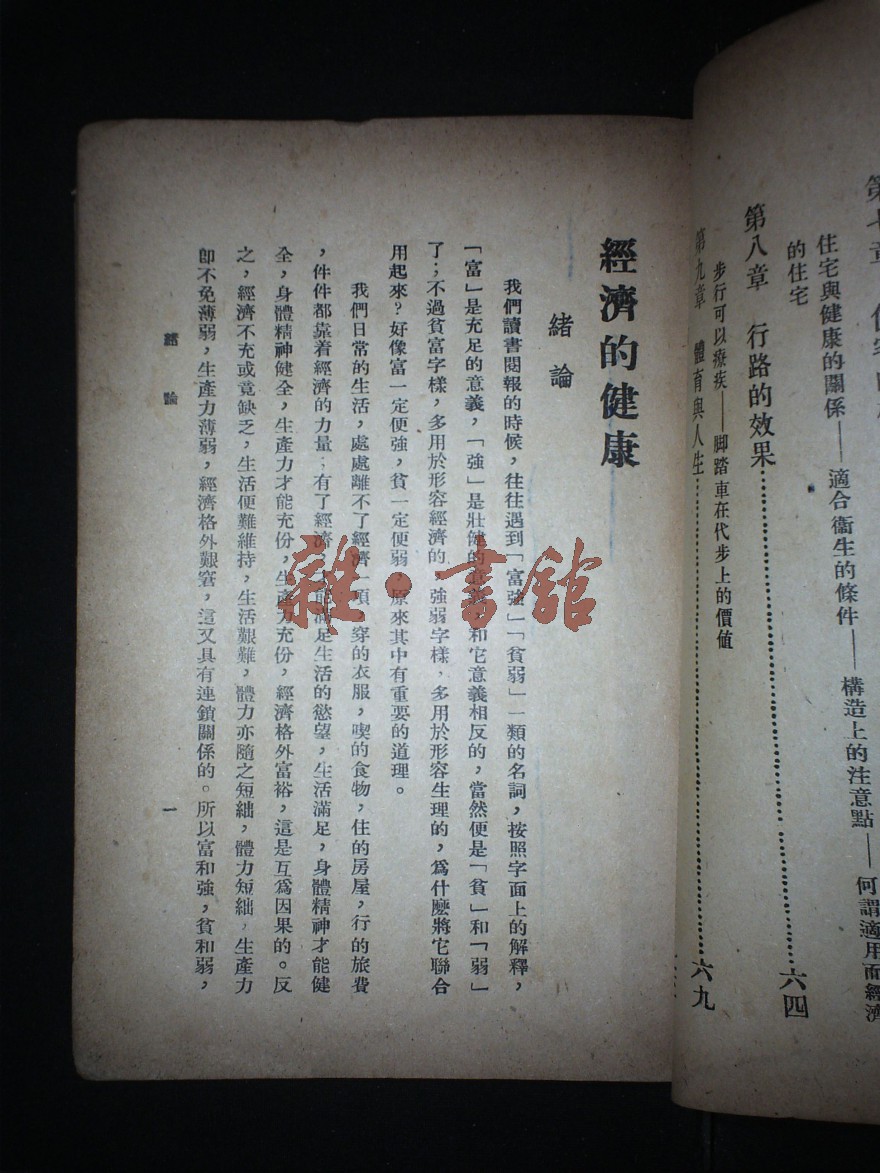 住宅與健康的關係——適合衞生的條件——構造上的注意點——何謂適用而經濟
的住宅
第八章　行路的效果……………………………六四
步行可以療疾——脚踏車在代步上的價值
第九章　體育與人生……………………………六九
經濟的健康
緒論
我們讀書閱報的時候，往往遇到「富強」「貧弱」一類的名詞，按照字面上的解釋，
「富」是充足的意義，「強」是壯健的意義，和它意義相反的，當然便是「貧」和「弱」
了；不過貧富字樣，多用於形容經濟的，強弱字樣，多用於形容生理的，爲什麽將它聯合
用起來？好像富一定便強，貧一定便弱，原來其中有重要的道理。
我們日常的生活，處處離不了經濟一項，穿的衣服，喫的食物，住的房屋，行的旅費
，件件都靠着經濟的力量；有了經濟，才能滿足生活的慾望，生活滿足，身體精神才能健
全，身體精神健全，生產力才能充份，生產力充份，經濟格外富裕，這是互爲因果的。反
之，經濟不充或竟缺乏，生活便難維持，生活艱難，體力亦隨之短絀，體力短絀，生產力
卽不免薄弱，生產力薄弱，經濟格外艱窘，這又具有連鎖關係的。所以富和強，貧和弱，
緒論
一
雜·書館